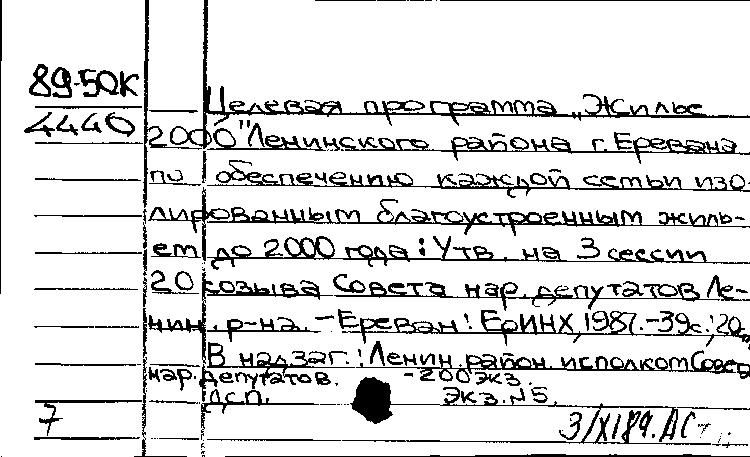 89-50К
4440
Целевая программа „Жилье
2000" Ленинского района г. Еревана
по обеспечению каждой семьи изо-
лированным благоустроенным жиль-
ем до 2000 года: Утв. на 3 сессии
20 созыва Совета нар. депутатов Ле-
нин. р-на. - Ереван: ЕрИНХ, 1987. - 39с.; 20
В надзаг.: Ленин. район. исполком Совета
нар. депутатов. - 200 экз.
ДСП. Экз. №5.
7
3/XI89. АС